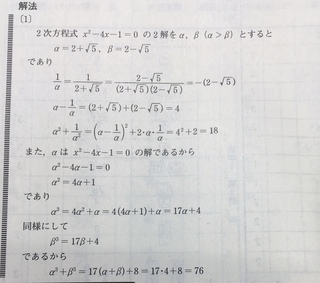 解法
(1)
2次方程式 x²-4x-1=0 の2解をα, β (α>β) とすると
α=2+√5, β=2-√5
であり
1/α = 1/(2+√5) = (2-√5)/((2+√5)(2-√5)) = -(2-√5)
α-1/α = (2+√5)+(2-√5)=4
α²+1/α² = (α-1/α)²+2·α·1/α = 4²+2=18
また, αは x²-4x-1=0 の解であるから
α²-4α-1=0
α²=4α+1
であり
α³=4α²+α=4(4α+1)+α=17α+4
同様にして
β³=17β+4
であるから
α³+β³=17(α+β)+8=17·4+8=76